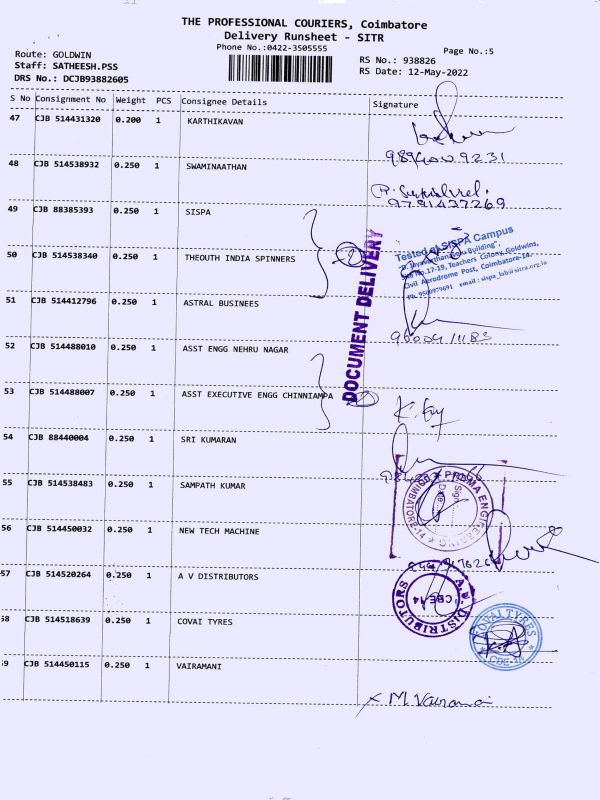 THE PROFESSIONAL COURIERS, Coimbatore
Delivery Runsheet - SITR
Phone No.:0422-3505555
Page No.:5
Route: GOLDWIN
Staff: SATHEESH.PSS
DRS No.: DCJB93882605
RS No.: 938826
RS Date: 12-May-2022
S No Consignment No Weight PCS Consignee Details Signature
47 CJB 514431320 0.200 1 KARTHIKAVAN
48 CJB 514538932 0.250 1 SWAMINAATHAN
49 CJB 88385393 0.250 1 SISPA
9791437269
50 CJB 514538340 0.250 1 THEOUTH INDIA SPINNERS
Tested at SISPA Campus
Teachers Colony, Goldwins,
Civil Aerodrome Post, Coimbatore-14.
DOCUMENT DELIVERY
51 CJB 514412796 0.250 1 ASTRAL BUSINEES
52 CJB 514488010 0.250 1 ASST ENGG NEHRU NAGAR
53 CJB 514488007 0.250 1 ASST EXECUTIVE ENGG CHINNIAMPA
54 CJB 88440004 0.250 1 SRI KUMARAN
55 CJB 514538483 0.250 1 SAMPATH KUMAR
Sign
Date
56 CJB 514450032 0.250 1 NEW TECH MACHINE
57 CJB 514520264 0.250 1 A V DISTRIBUTORS
A.V. DISTRIBUTORS
CBE-14
58 CJB 514518639 0.250 1 COVAI TYRES
COVAI TYRES
59 CJB 514450115 0.250 1 VAIRAMANI